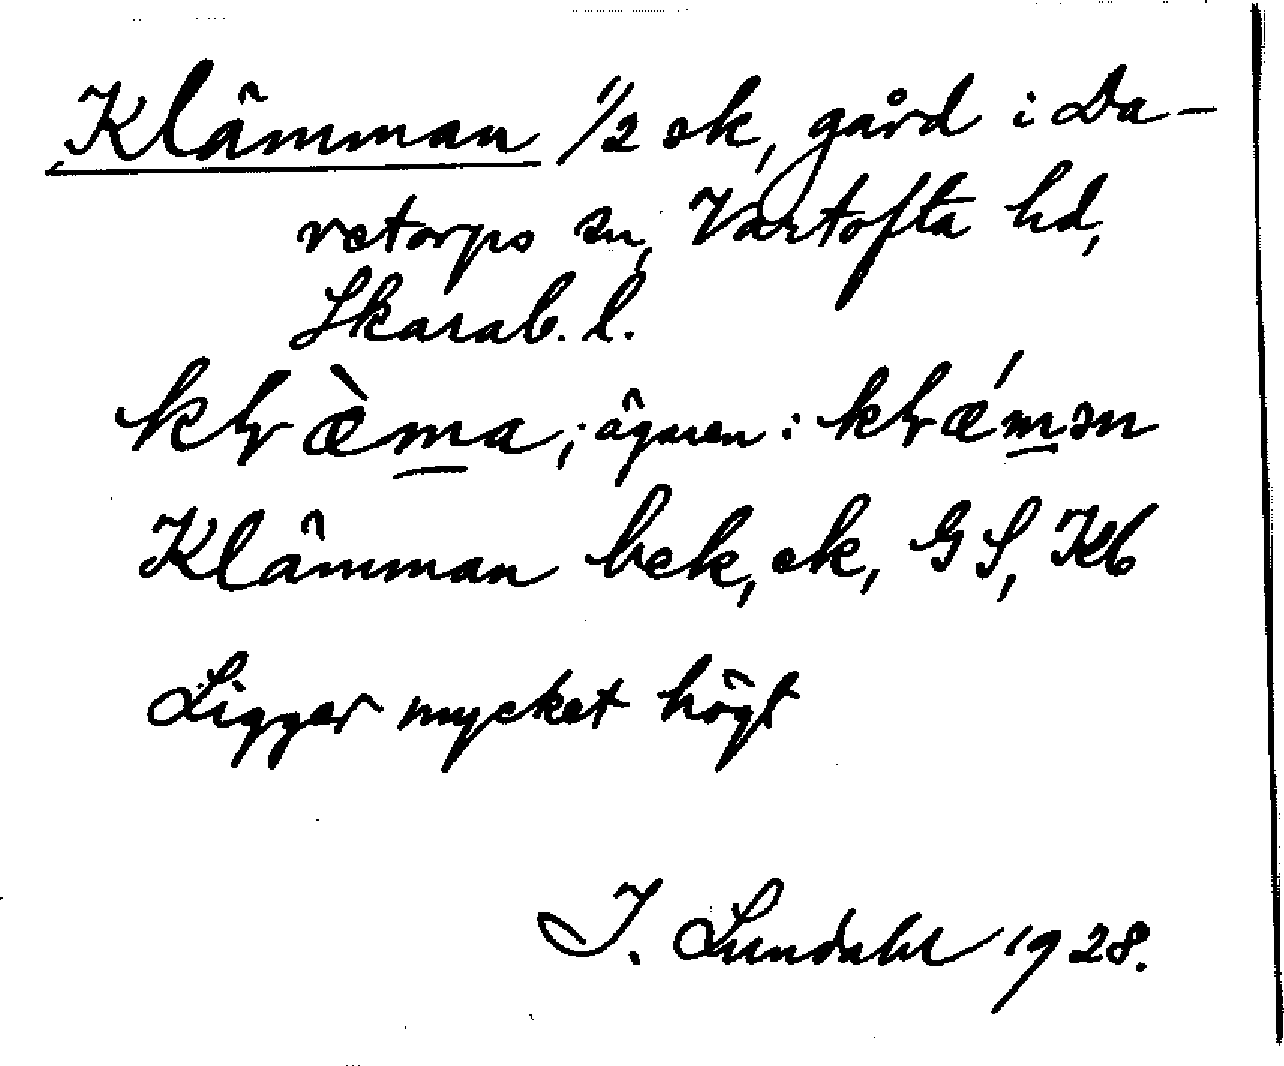 Klämman 1/2 ek, gård i Da-
retorps sn, Vartofta hd,
Skarab. l.
klræ̀ma; ägaren: klrǽmən
Klämman bek, ek, GS, Kb
Ligger mycket högt
I. Lundahl 1928.